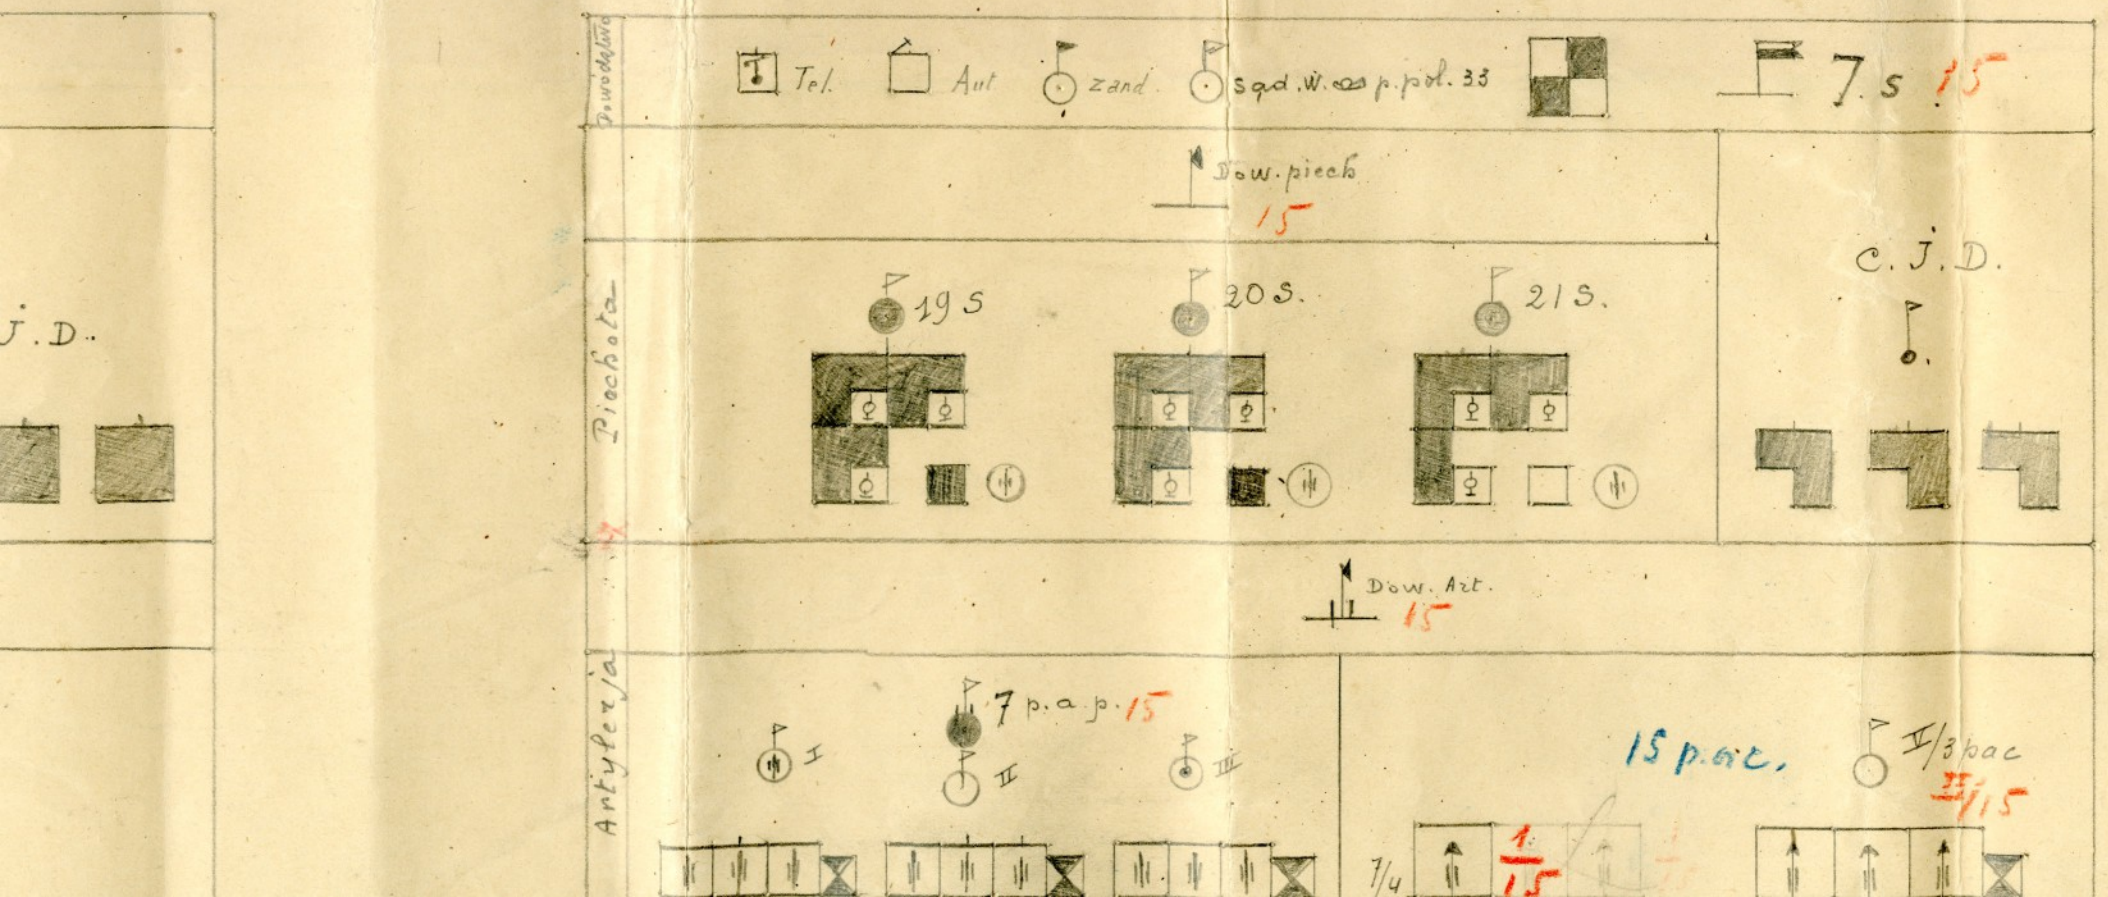 Dowództwo
Tel. Aut żand. sąd.w. p.pol.33 7. s 15
Dow. piech
15
Piechota
19 S 20 S. 21 S.
C. J. D.
J. D.
Dow. Art.
15
Artylerja
7 p.a.p. 15
I II III
15 p.ac.
II/3 pac
II/15
7/4
1
15